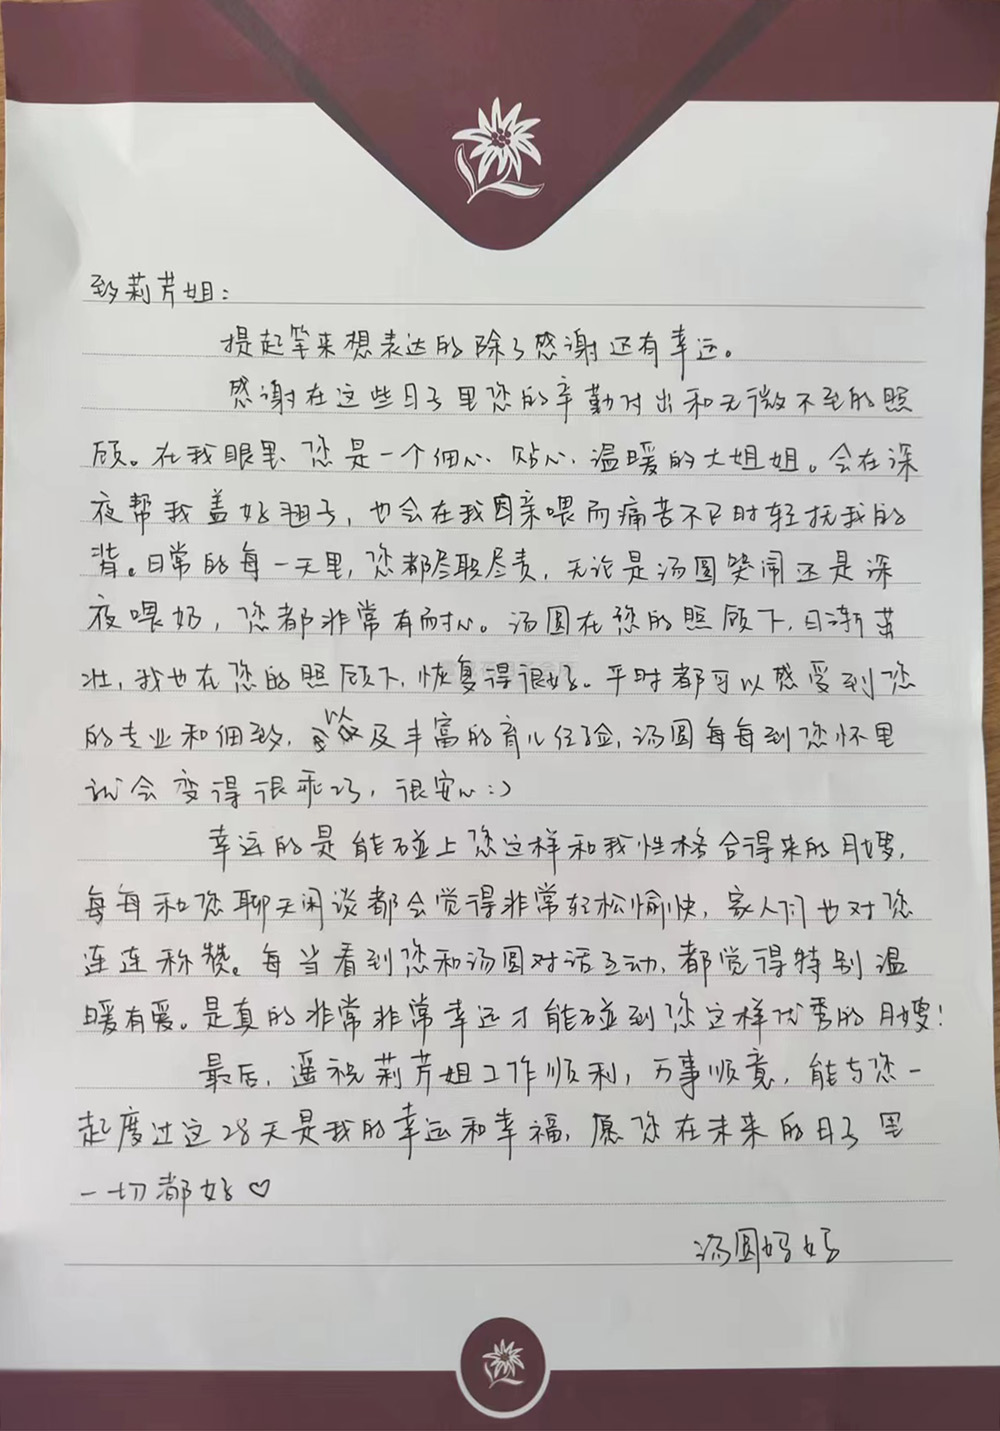 致莉芹姐：
提起笔来想表达的除了感谢还有幸运。
感谢在这些日子里您的辛勤付出和无微不至的照
顾。在我眼里、您是一个细心、贴心、温暖的大姐姐。会在深
夜帮我盖好翅子，也会在我因亲喂而痛苦不已时轻抚我的
背。日常的每一天里，您都尽职尽责，无论是汤圆哭闹还是深
夜喂奶，您都非常有耐心。汤圆在您的照顾下，日渐茁
壮，我也在您的照顾下，恢复得很好。平时都可以感受到您
的专业和细致，以及丰富的育儿经验，汤圆每每到您怀里
就会变得很乖巧，很安心:)
幸运的是能碰上您这样和我性格合得来的月嫂，
每每和您聊天闲谈都会觉得非常轻松愉快，家人们也对您
连连称赞。每当看到您和汤圆对话互动，都觉得特别温
暖有爱。是真的非常非常幸运才能碰到您这样优秀的月嫂！
最后，遥祝莉芹姐工作顺利，万事顺意，能与您一
起度过这28天是我的幸运和幸福，愿您在未来的日子里
一切都好♡
汤圆妈妈